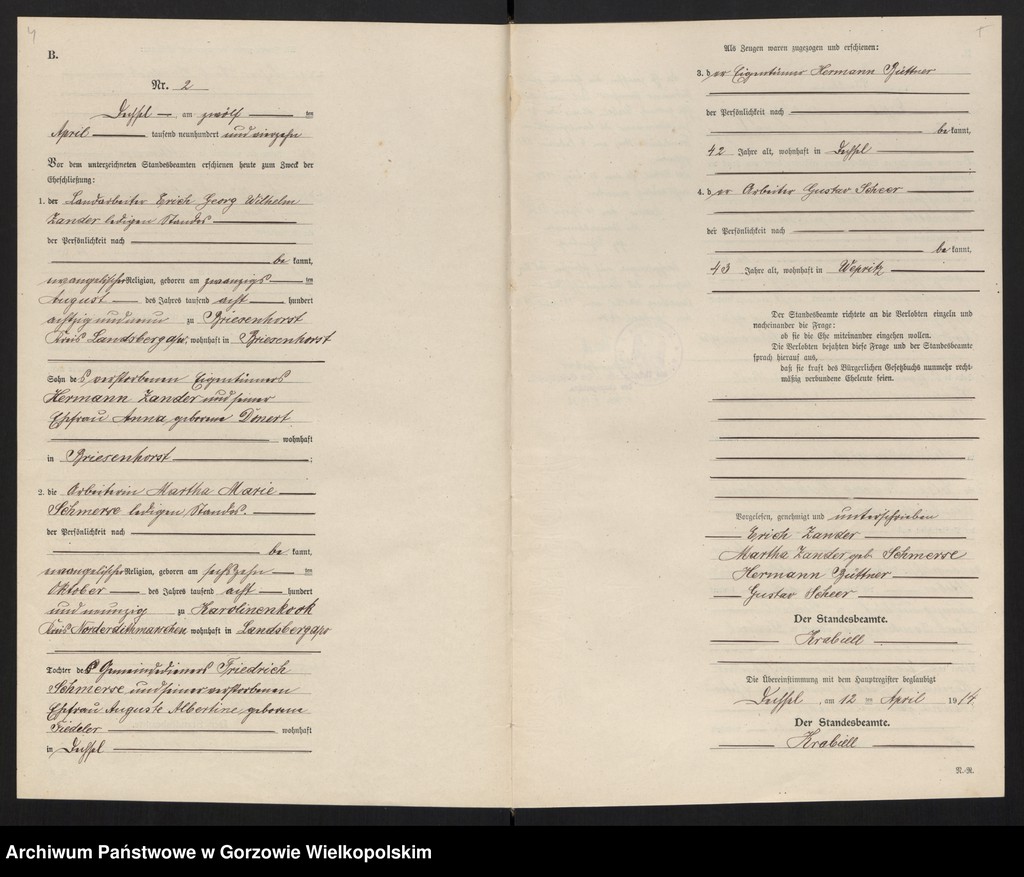 B.
Nr. 2
Dechsel, am zwölf ten
April tausend neunhundert und vierzehn
Vor dem unterzeichneten Standesbeamten erschienen heute zum Zweck der
Eheschließung:
1. der Landarbeiter Erich Georg Wilhelm
Zander ledigen Standes
der Persönlichkeit nach
be kannt,
evangelischer Religion, geboren am zwanzigs ten
August des Jahres tausend acht hundert
achtzig und neun zu Briesenhorst
Kreis Landsberg a/w, wohnhaft in Briesenhorst
Sohn des verstorbenen Eigentümers
Hermann Zander und seiner
Ehefrau Anna geborene Dönert
wohnhaft
in Briesenhorst ;
2. die Arbeiterin Martha Marie
Schmerse ledigen Standes.
der Persönlichkeit nach
be kannt,
evangelischer Religion, geboren am sechszehn ten
Oktober des Jahres tausend acht hundert
und neunzig zu Karolinenkook
Kreis Norderdithmarschen wohnhaft in Landsberg a/w
Tochter des Gemeindedieners Friedrich
Schmerse und seiner verstorbenen
Ehefrau Auguste Albertine geborene
Fiedeler wohnhaft
in Dechsel
Als Zeugen waren zugezogen und erschienen:
3. der Eigentümer Hermann Büttner
der Persönlichkeit nach
be kannt,
42 Jahre alt, wohnhaft in Dechsel
4. der Arbeiter Gustav Scheer
der Persönlichkeit nach
be kannt,
43 Jahre alt, wohnhaft in Wepritz
Der Standesbeamte richtete an die Verlobten einzeln und
nacheinander die Frage:
ob sie die Ehe miteinander eingehen wollen.
Die Verlobten bejahten diese Frage und der Standesbeamte
sprach hierauf aus,
daß sie kraft des Bürgerlichen Gesetzbuchs nunmehr recht-
mäßig verbundene Eheleute seien.
Vorgelesen, genehmigt und unterschrieben
Erich Zander
Martha Zander geb. Schmerse
Hermann Büttner
Gustav Scheer
Der Standesbeamte.
Krabiell
Die Übereinstimmung mit dem Hauptregister beglaubigt
Dechsel, am 12 ten April 1914.
Der Standesbeamte.
Krabiell
N.-R.
Archiwum Państwowe w Gorzowie Wielkopolskim